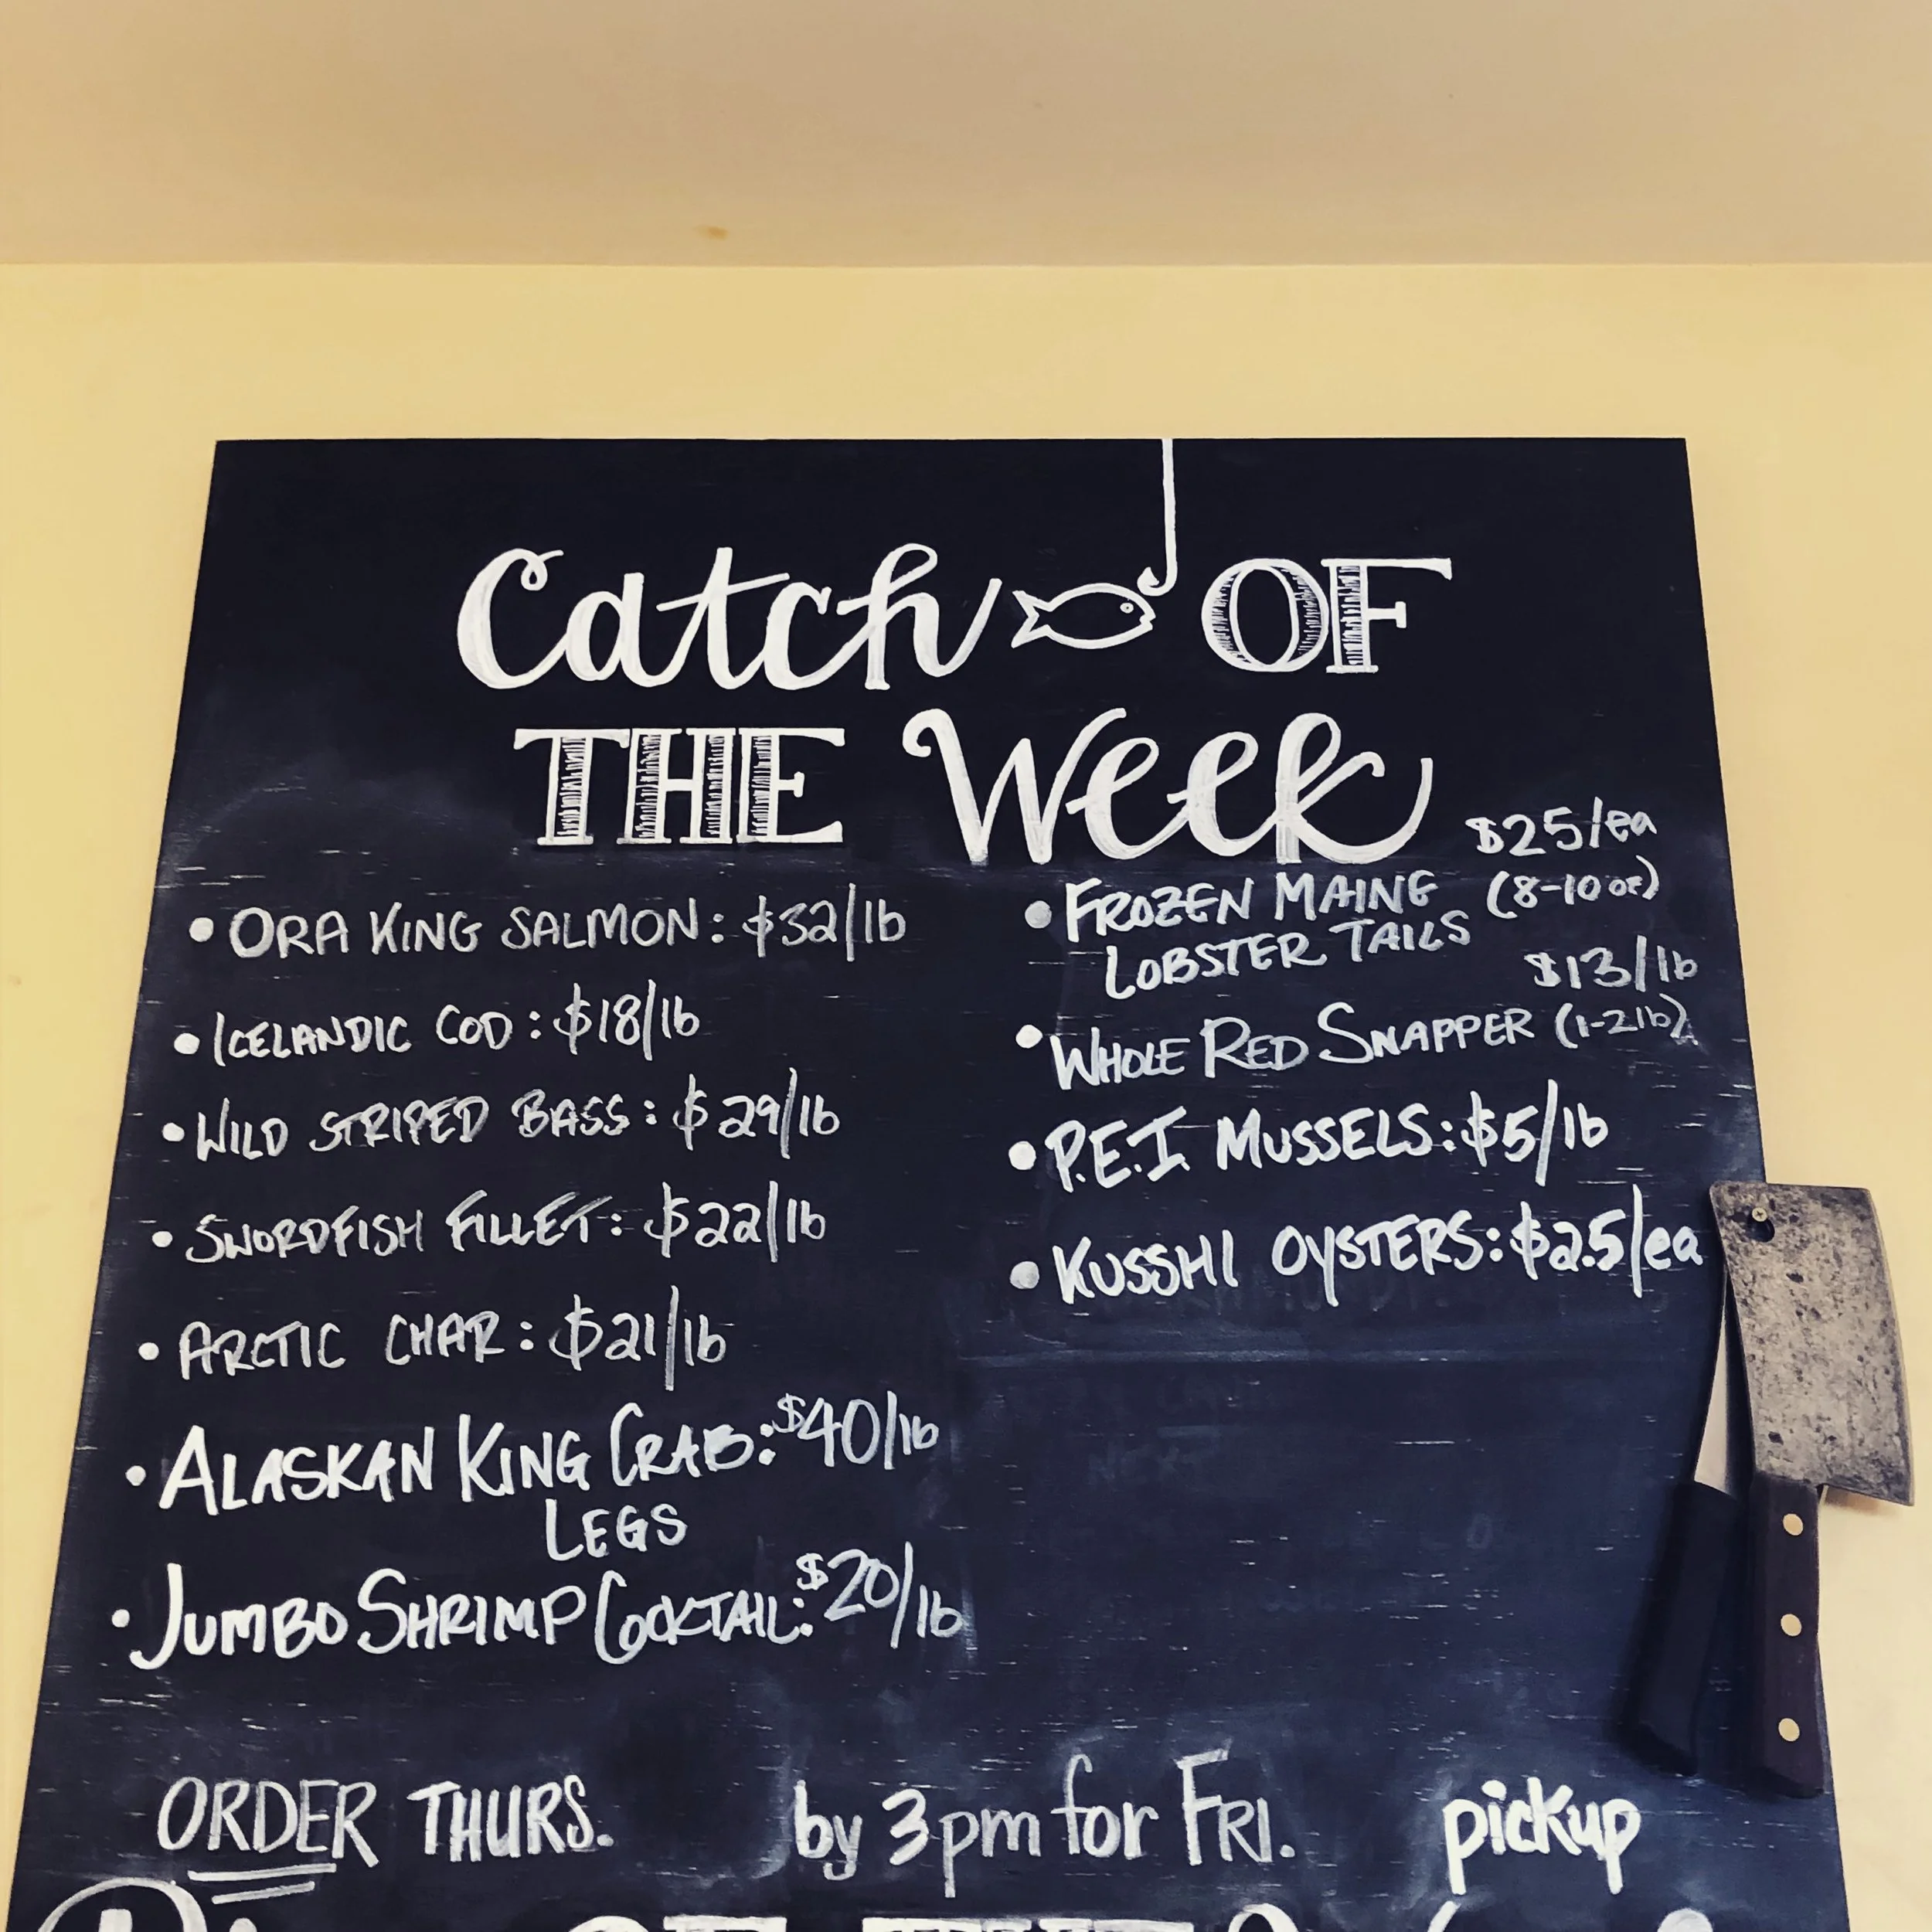 Catch OF
THE Week
• ORA KING SALMON: $32/lb
• ICELANDIC COD: $18/lb
• WILD STRIPED BASS: $29/lb
• SWORDFISH FILLET: $22/lb
• ARCTIC CHAR: $21/lb
• ALASKAN KING CRAB: $40/lb
LEGS
• JUMBO SHRIMP COCKTAIL: $20/lb
$25/ea
• FROZEN MAINE (8-10 oz)
LOBSTER TAILS
$13/lb
• WHOLE RED SNAPPER (1-2lb)
• P.E.I. MUSSELS: $5/lb
• KUSSHI OYSTERS: $2.5/ea
ORDER THURS. by 3pm for FRI. pickup